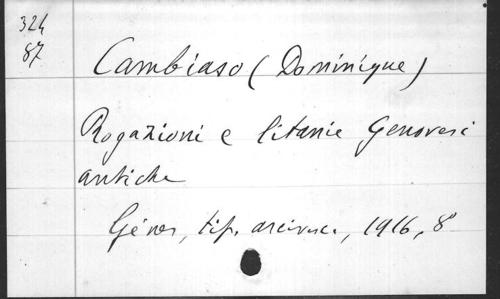 324
87
Cambiaso (Dominique)
Rogazioni e litanie Genovesi
antiche
Gênes, tip. arcivesc., 1916, 8°